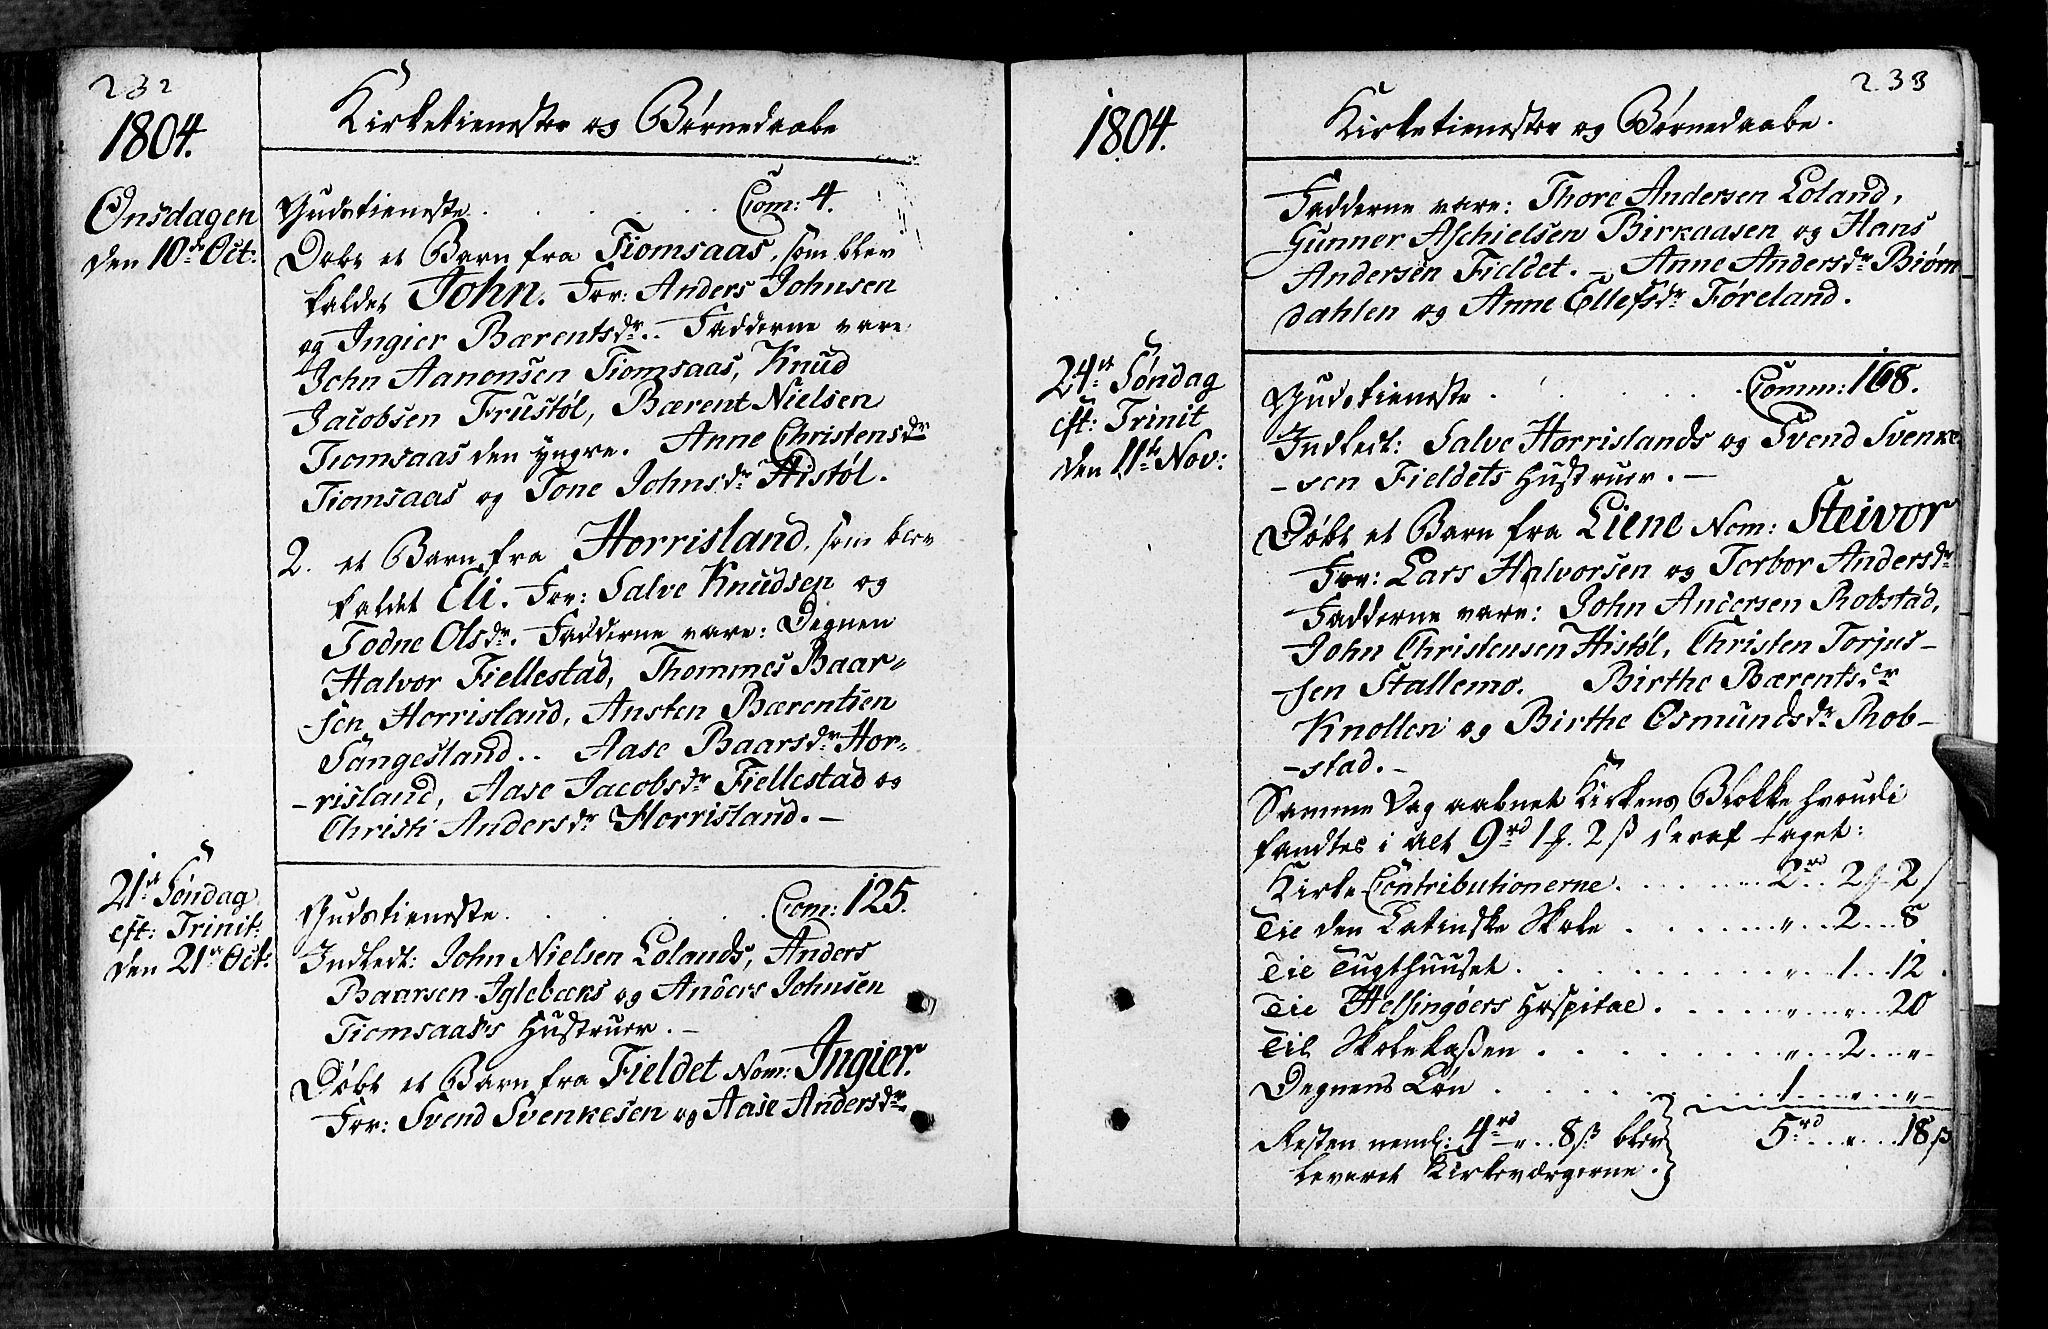 232
1804.
Kirketieneste og Børnedaabe
Onsdagen
den 10de Oct:
Gudstieneste . . . . . . Com: 4.
Døbt et Barn fra Tiomsaas, som blev
kaldet John. For: Anders Johnsen
og Ingier Bærentsdr. Fadderne vare
John Aanonsen Tiomsaas, Knud
Jacobsen Frustøl, Bærent Nielsen
Tiomsaas den yngre. Anne Christensdr
Tiomsaas og Tone Johnsdr Histøl.
2. et Barn fra Horrisland, som blev
kaldet Eli. For: Salve Knudsen og
Todne Olsdr. Fadderne vare: Degnen
Halvor Fiellestad, Thommes Baar-
-sen Horrisland, Ansten Bærentsen
Sangesland.. Aase Baarsdr Hor-
-risland, Aase Jacobsdr Fiellestad og
Christi Andersdr Horrisland. -
21st Søndag
eft: Trinit:
den 21st Oct:
Gudstieneste . . . . . . Com: 125.
Indledt: John Nielsen Lolands, Anders
Baarsen Iglebæks og Anders Johnsen
Tiomsaas's Hustruer. -
Døbt et Barn fra Fieldet Nom: Ingier.
For: Svend Svenkesen og Aase Andersdr
233
1804.
Kirketieneste og Børnedaabe.
Fadderne vare: Thore Andersen Loland,
Gunner Aschielsen Birkaasen og Hans
Andersen Fieldet. - Anne Andersdr Biørn
dahlen og Anne Ellefsdr Føreland.
24st Søndag
eft: Trinit
den 11te Nov:
Gudstieneste . . . . . . Comm: 168.
Indledt: Salve Horrislands og Svend Svenke
-sen Fieldets Hustruer. -
Døbt et Barn fra Liene Nom: Steivor
For: Lars Halvorsen og Torbor Andersdr
Fadderne vare: John Andersen Robstad,
John Christensen Histøl, Christen Torjus-
-sen Stallemo. Birthe Bærentsdr
Knollen og Birthe Osmundsdr Rob-
-stad. -
Samme Dag aabnet Kirkens Blokke hvoudi
fandtes i alt 9rd 1 f. 2 ß deraf taget:
Kirke Contributionerne . . . . . . 2rd.. 2 f 2 ß
Til den Latinske Skole . . . . . . " .. 2 .. 8
Til Tugthuuset . . . . . . " .. 1 .. 12.
Til Helsingøers Hospital . . . . . . " .. " .. 20
Til Skolekaßen . . . . . . " .. 2 .. "
Degnens Løn . . . . . . 1 .. " .. "
Resten neml: 4rd " .. 8 ß blev 5rd .. " .. 18 ß
leveret Kirkeværgerne.